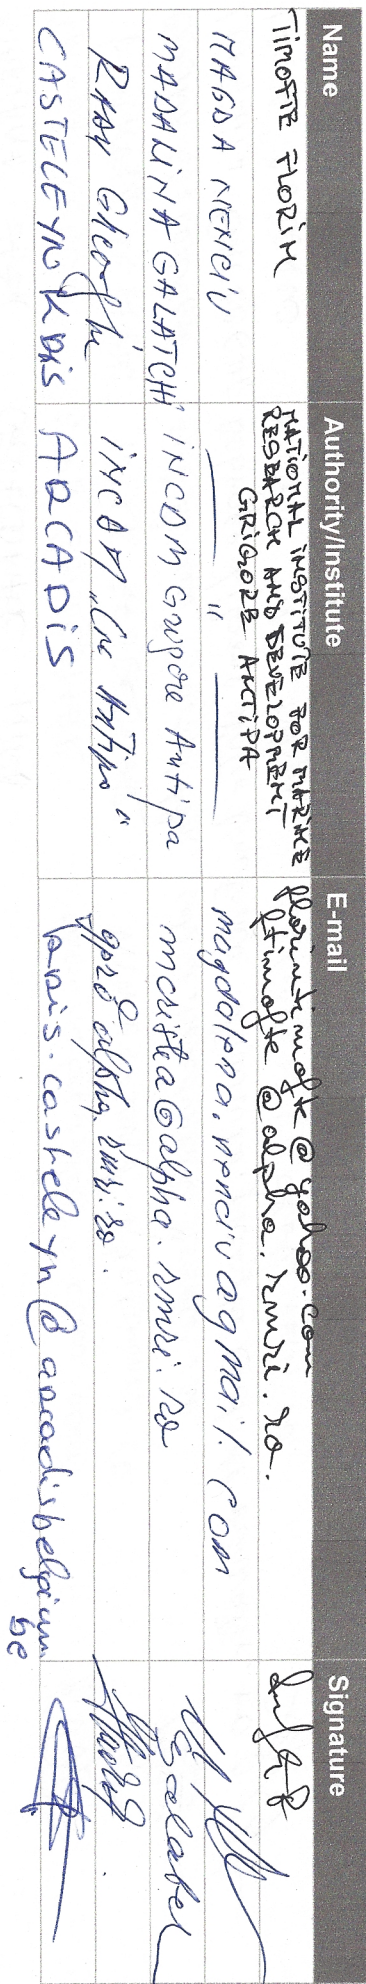 Name Authority/Institute E-mail Signature
TIMOFTE FLORIN NATIONAL INSTITUTE FOR MARINE RESEARCH AND DEVELOPMENT GRIGORE ANTIPA florintimofte@yahoo.com
ftimofte@alpha.rmri.ro.
MAGDA NENCIU — " — magdalena.nenciu@gmail.com
MADALINA GALATCHI INCDM Grigore Antipa mcristea@alpha.rmri.ro
Radu Gheorghe INCDM „Gr. Antipa" gpr@alpha.rmri.ro.
CASTELEYN KRIS ARCADIS kris.casteleyn@arcadisbelgium
be